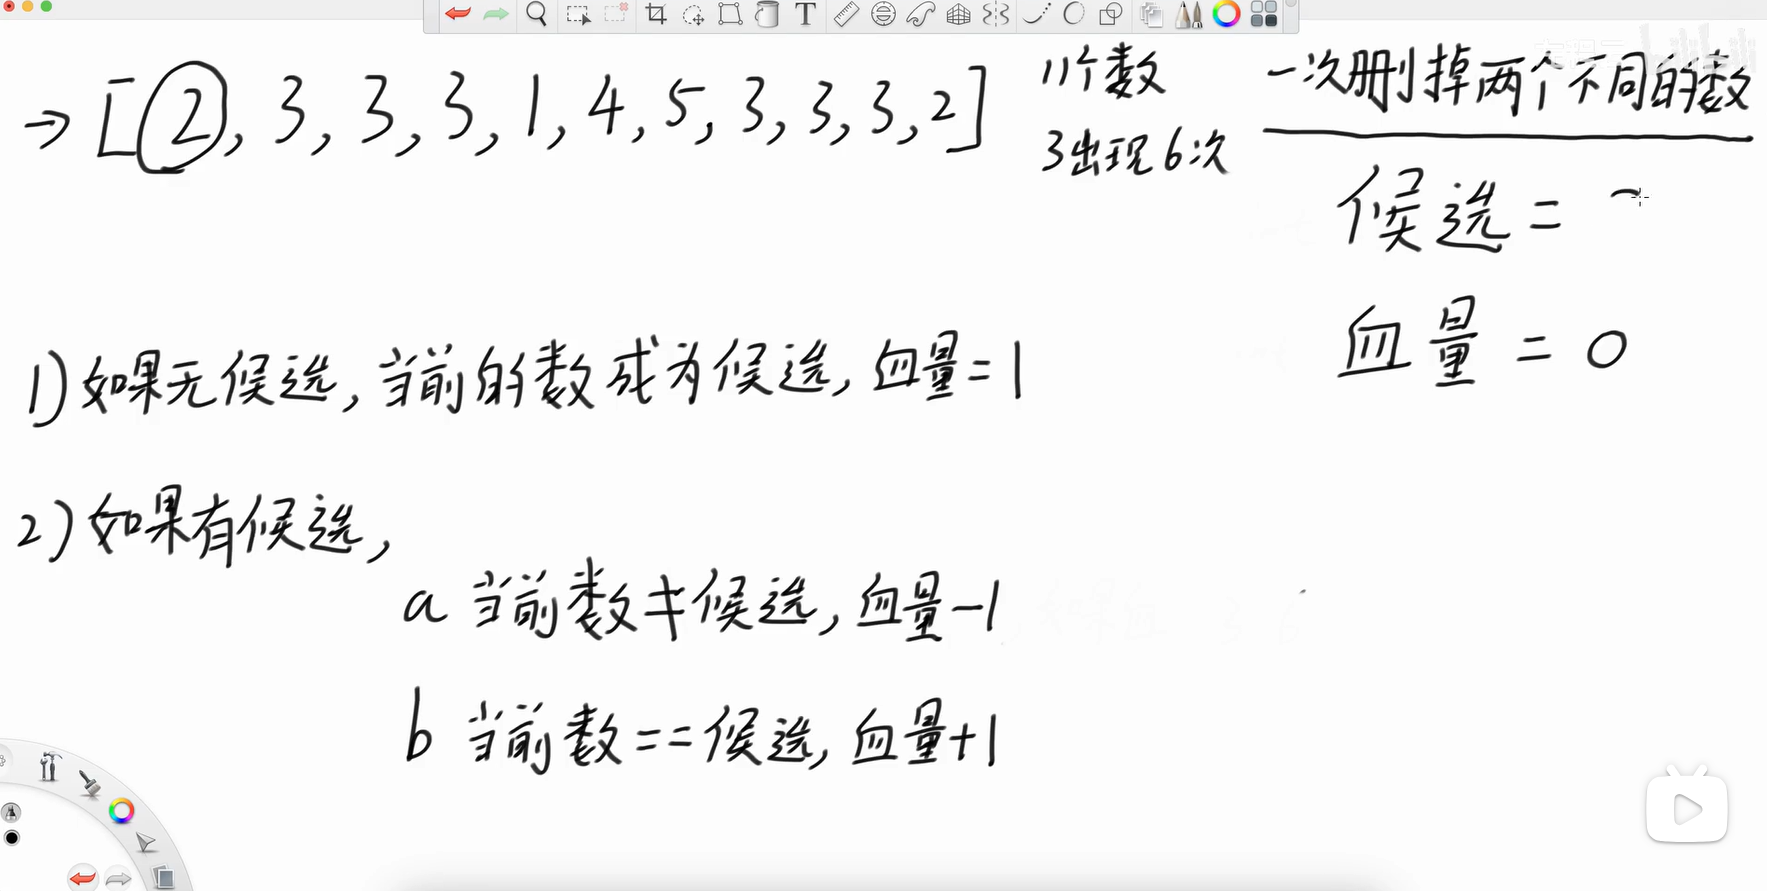 → [2, 3, 3, 3, 1, 4, 5, 3, 3, 3, 2]
11个数
3出现6次
一次删掉两个不同的数
候选 =
血量 = 0
1)如果无候选,当前的数成为候选,血量=1
2)如果有候选,
a 当前数≠候选,血量-1
b 当前数==候选,血量+1